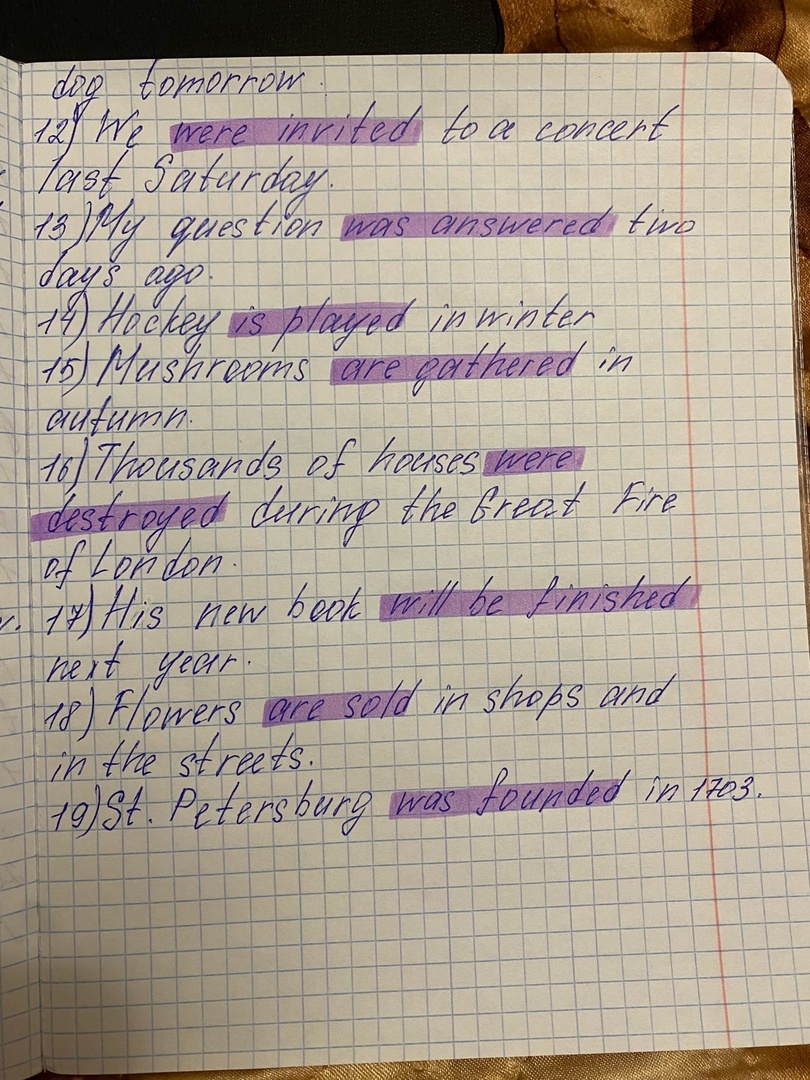 dog tomorrow.
12) We were invited to a concert
last Saturday.
13) My question was answered two
days ago.
14) Hockey is played in winter
15) Mushrooms are gathered in
autumn.
16) Thousands of houses were
destroyed during the Great Fire
of London.
17) His new book will be finished
next year.
18) Flowers are sold in shops and
in the streets.
19) St. Petersburg was founded in 1703.